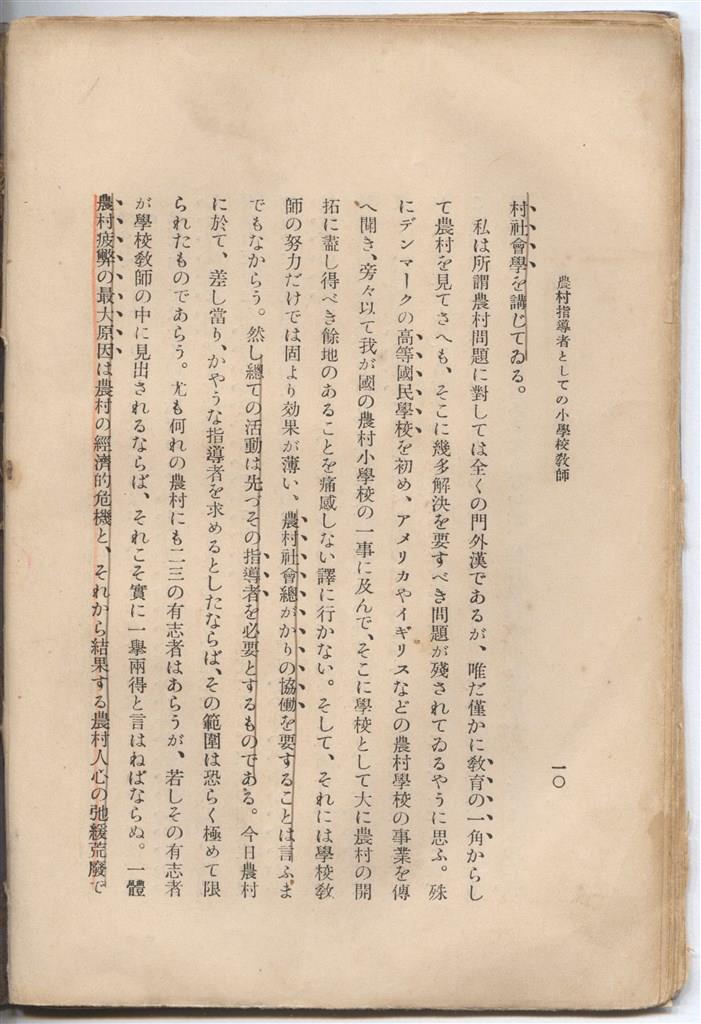 農村指導者としての小學校敎師
一〇
村社會學を講じてゐる。
私は所謂農村問題に對しては全くの門外漢であるが、唯だ僅かに敎育の一角からし
て農村を見てさへも、そこに幾多解決を要すべき問題が殘されてゐるやうに思ふ。殊
にデンマークの高等國民學校を初め、アメリカやイギリスなどの農村學校の事業を傳
へ聞き、旁々以て我が國の農村小學校の一事に及んで、そこに學校として大に農村の開
拓に盡し得べき餘地のあることを痛感しない譯に行かない。そして、それには學校敎
師の努力だけでは固より効果が薄い、農村社會總がかりの協働を要することは言ふま
でもなからう。然し總ての活動は先づその指導者を必要とするものである。今日農村
に於て、差し當り、かやうな指導者を求めるとしたならば、その範圍は恐らく極めて限
られたものであらう。尤も何れの農村にも二三の有志者はあらうが、若しその有志者
が學校敎師の中に見出されるならば、それこそ實に一擧兩得と言はねばならぬ。一體
農村疲弊の最大原因は農村の經濟的危機と、それから結果する農村人心の弛緩荒廢で